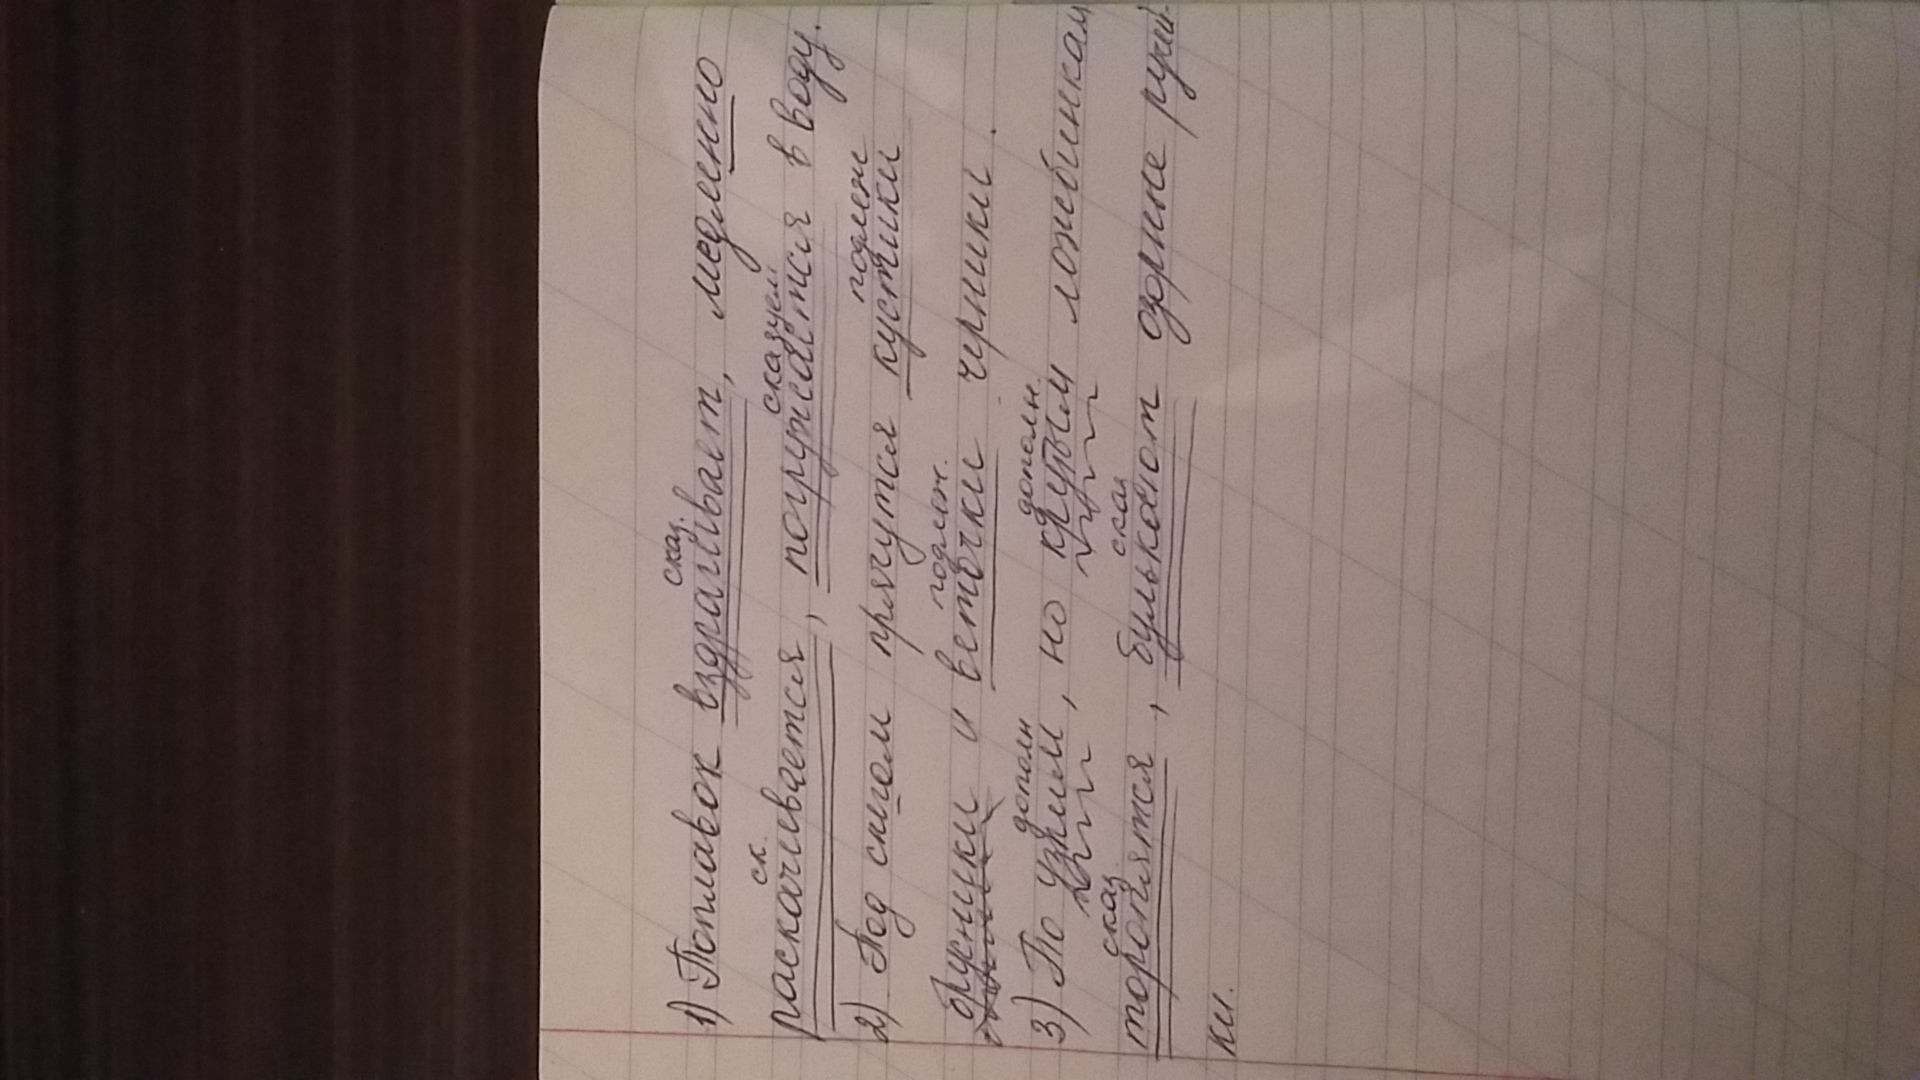 сказ.
1) Поплавок вздрагивает, медленно
ск. сказуем
раскачивается, погружается в воду.
подлеж
2) Под снегом прячутся кустики
подлеж.
брусники и веточки черники.
дополн дополн.
3) По узким, но крутым ложбинкам
сказ. сказ
торопятся, булькают озорные ручей-
ки.